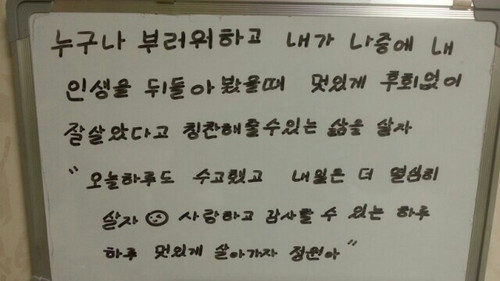 누구나 부러워하고 내가 나중에 내
인생을 뒤돌아 봤을때 멋있게 후회없이
잘살았다고 칭찬해줄수있는 삶을 살자
"오늘하루도 수고했고 내일은 더 열심히
살자 사랑하고 감사할 수 있는 하루
하루 멋있게 살아가자 정원아"